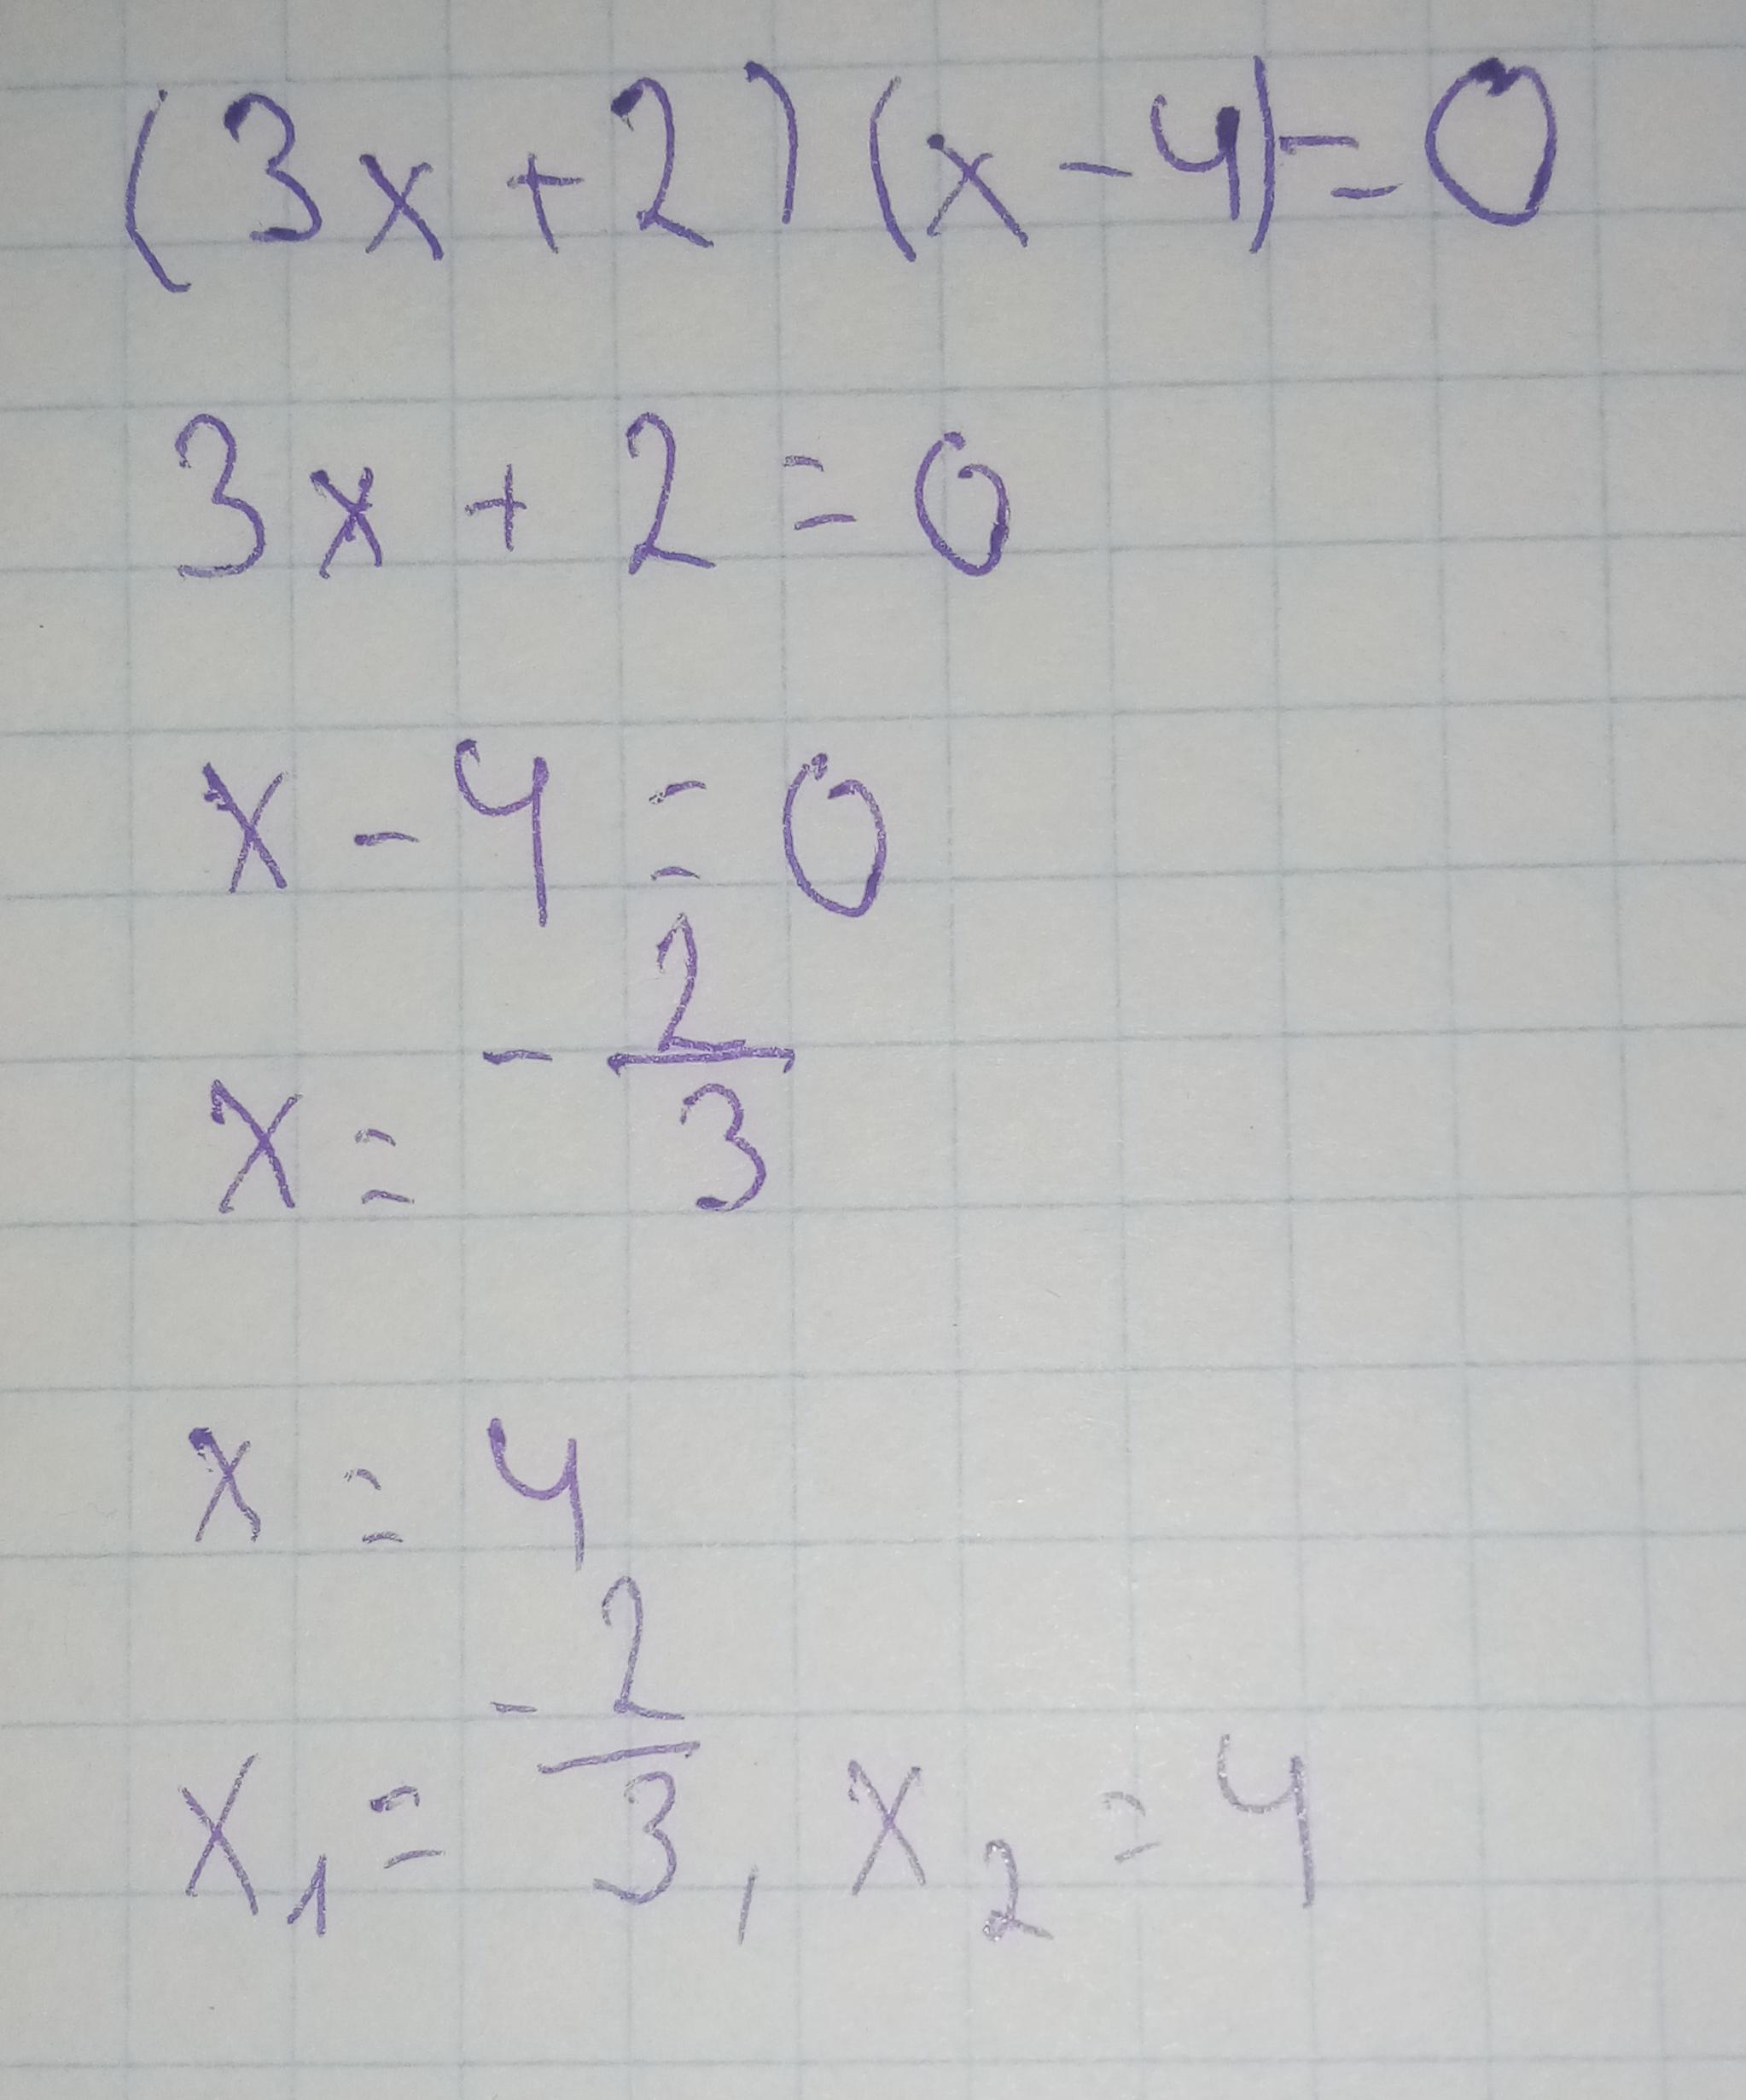 (3x+2)(x-4)=0
3x+2=0
x-4=0
x=-2/3
x=4
x₁=-2/3, x₂=4